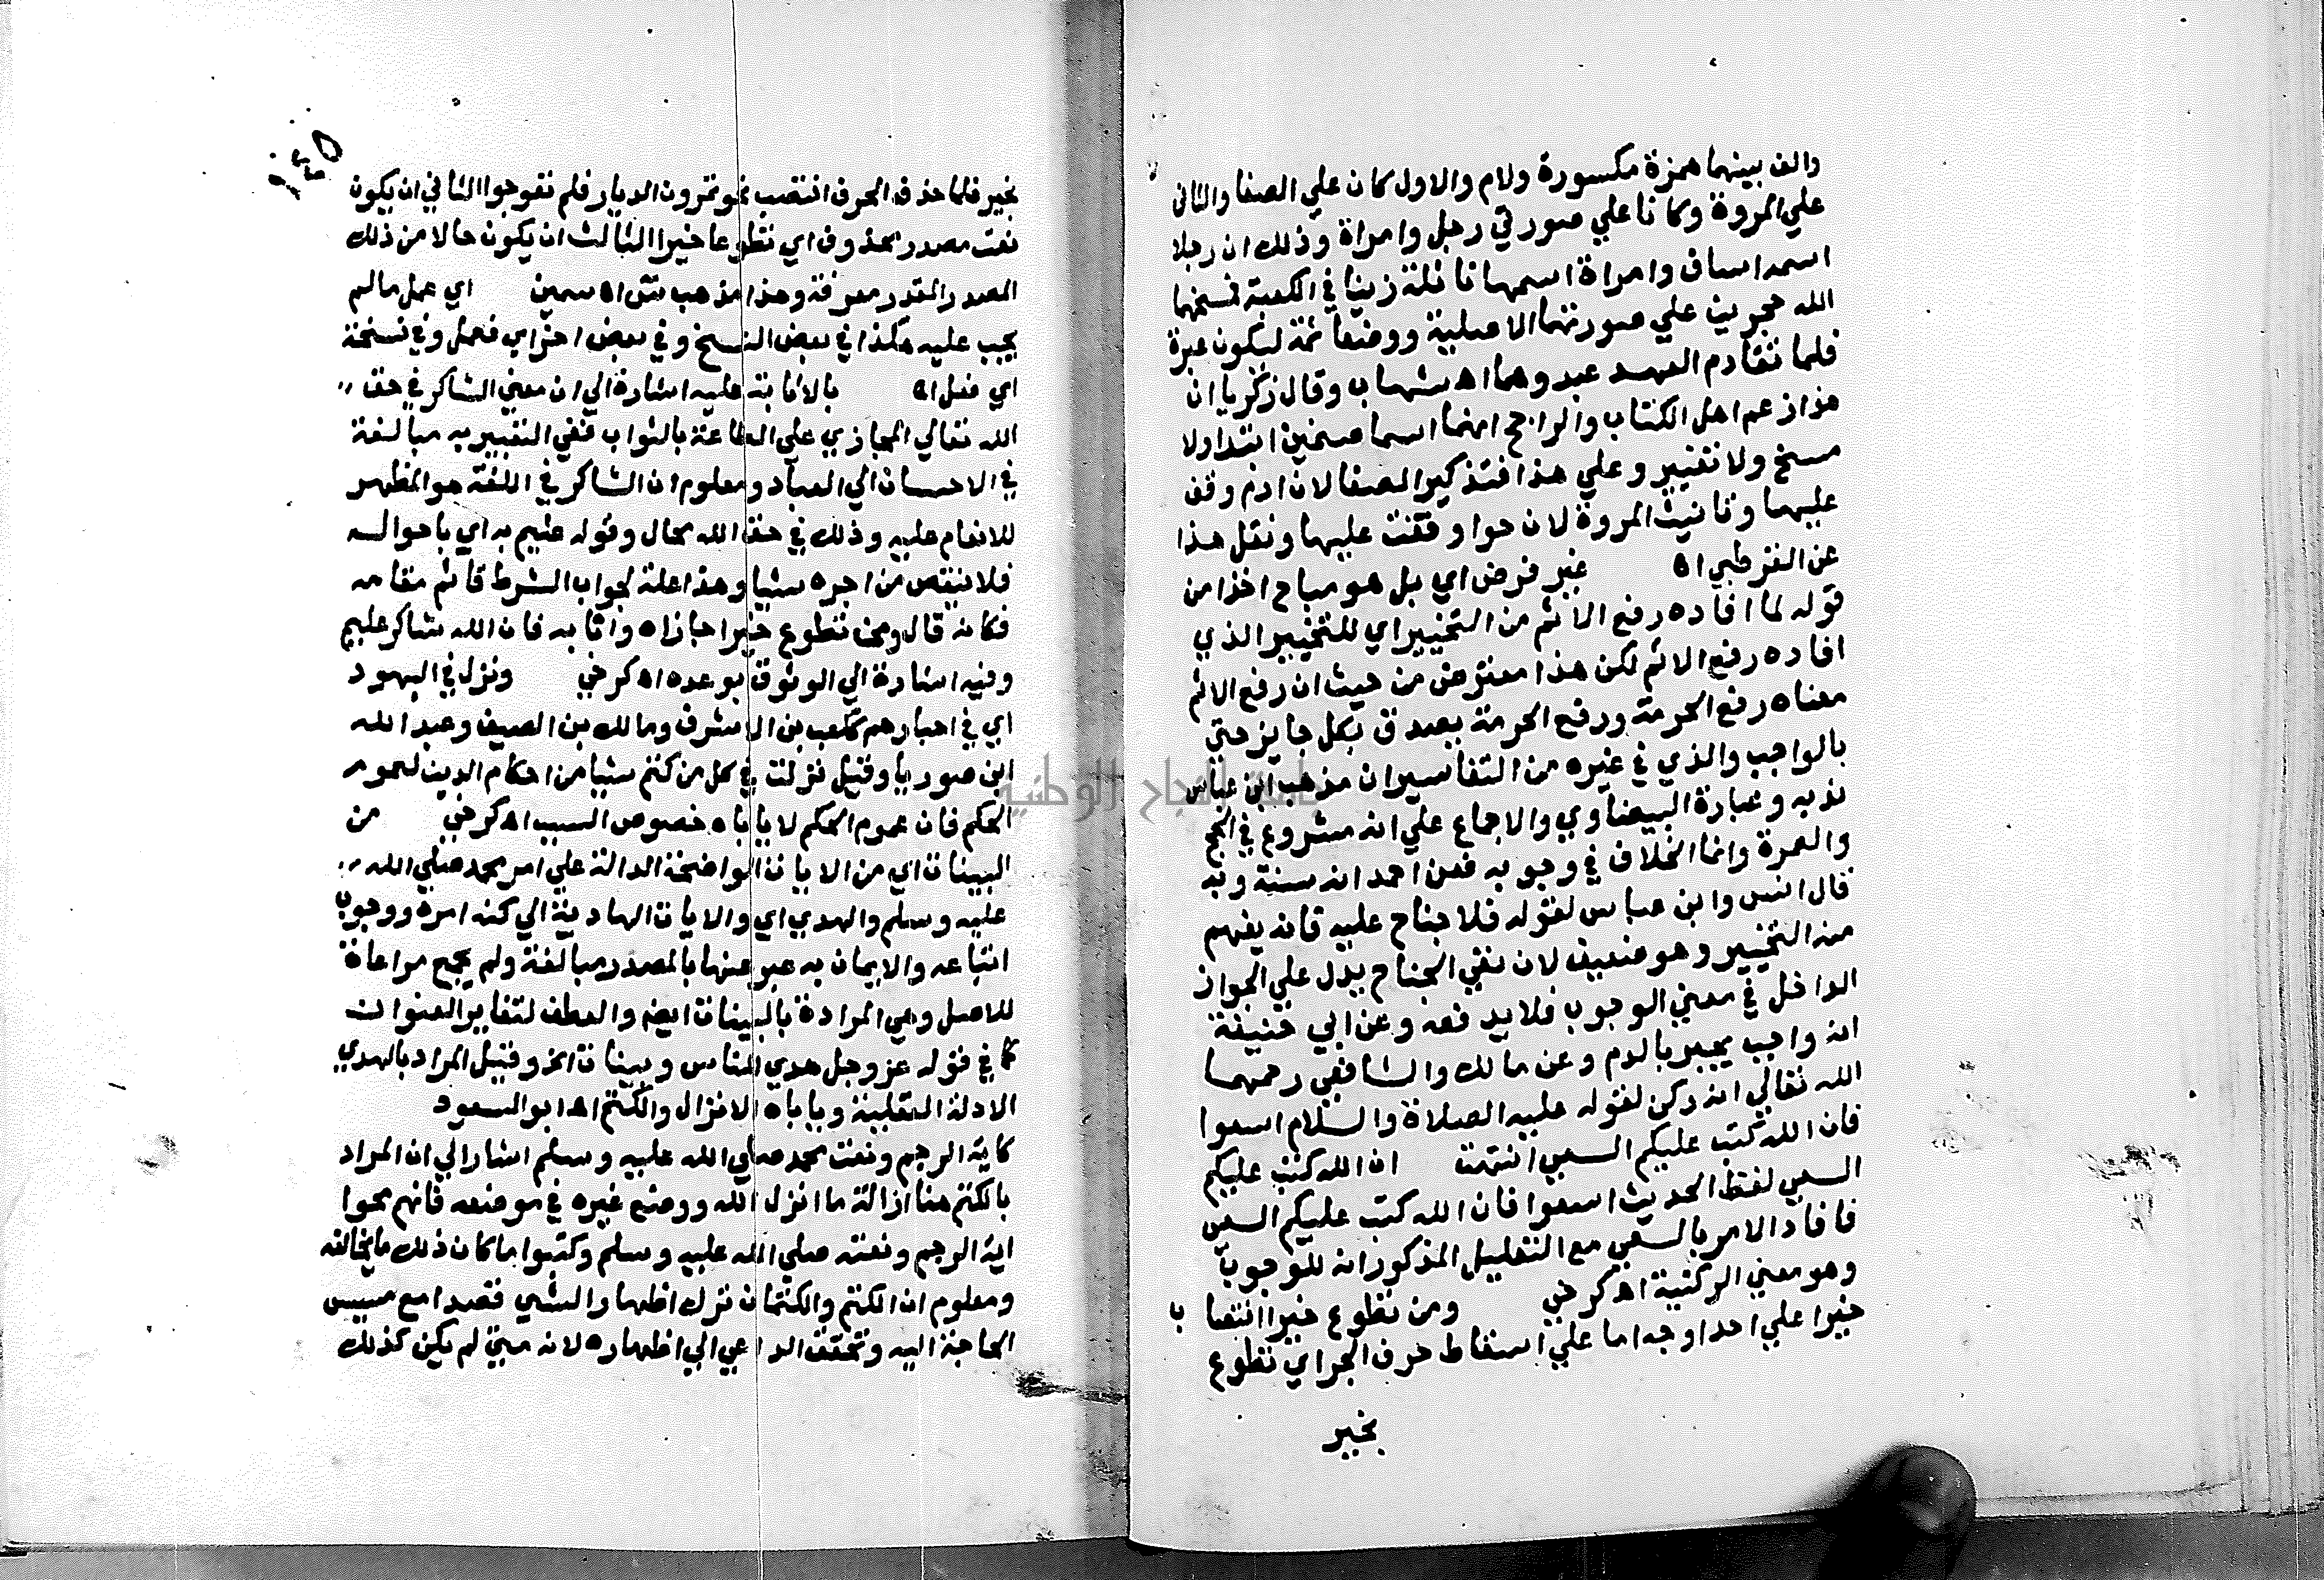 والف بينهما همزة مكسورة ولام والاول كان علي الصفا والثاني
علي المروة وكانا علي صورتي رجل وامراة وذلك ان رجلا
اسمه اساف وامراة اسمها نائلة زنيا في الكعبة فمسخهما
الله حجرين علي صورتهما الاصلية ووضعا ثمة ليكون عبرة
فلما تقادم العهد عبدوهما اه شهاب وقال زكريا ان
هذا زعم اهل الكتاب والراجح انهما اسما صنمين ابتدا ولا
مسخ ولا تغيير وعلي هذا فتذكير الصفا لان ادم وقف
عليهما وتانيث المروة لان حوا وقفت عليها ونقل هذا
عن القرطبي اه غير فرض اي بل هو مباح اخذا من
قوله لما افاده رفع الاثم من التخيير اي للتخيير الذي
افاده رفع الاثم لكن هذا معترض من حيث ان رفع الاثم
معناه رفع الحرمة ورفع الحرمة يصدق بكل جايز حتي
بالواجب والذي في غيره من التفاسير ان مذهب ابن عباس
ندبه وعبارة البيضاوي والاجماع علي انه مشروع في الحج
والعمرة وانما الخلاف في وجوبه فعن احمد انه سنة وبه
قال انس وابن عباس لقوله فلا جناح عليه فانه يفهم
منه التخيير وهو ضعيف لان نفي الجناح يدل علي الجواز
الداخل في معني الوجوب فلا يدفعه وعن ابي حنيفة
انه واجب يجبر بالدم وعن مالك والشافعي رحمهما
الله تعالي انه ركن لقوله عليه الصلاة والسلام اسعوا
فان الله كتب عليكم السعي انتهت ان الله كتب عليكم
السعي لفظ الحديث اسعوا فان الله كتب عليكم السعي
فافاد الامر بالسعي مع التعليل المذكور انه للوجوب
وهو معني الركنية اه كرخي ومن تطوع خيرا انتصاب
خيرا علي احد اوجه اما علي اسقاط حرف الجر اي تطوع
بخير
بخير فلما حذف الحرف انتصب نحو تمرون الديار فلم تعوجوا الثاني ان يكون
نعت مصدر محذوف اي تطوعا خيرا الثالث ان يكون حالا من ذلك
المصدر المقدر معرفة وهذا مذهب اه سمين اي عمل مالم
يجب عليه هكذا في بعض النسخ وفي بعض اخر اي فعمل وفي نسخة
اي فعل اه بالاثابة عليه اشارة الي ان معني الشاكر في حق
الله تعالي المجازي علي الطاعة بالثواب ففي التعبير به مبالغة
في الاحسان الي العباد ومعلوم ان الشاكر في اللغة هو المظهر
للانعام عليه وذلك في حق الله محال وقوله عليم به اي باحواله
فلا ينقص من اجره شيا وهذا علة لجواب الشرط قائم مقامه
فكانه قال ومن تطوع خيرا جازاه واثابه فان الله شاكر عليم
وفيه اشارة الي الوثوق بوعده اه كرخي ونزل في اليهود
اي في احبارهم ككعب بن الاشرف ومالك بن الصيف وعبد الله
ابن صوريا وقيل نزلت في كل من كتم شيا من احكام الدين لعموم
الحكم فان عموم الحكم لا ياباه خصوص السبب اه كرخي من
البينات اي من الايات الواضحة الدالة علي امر محمد صلي الله
عليه وسلم والهدي اي والايات الهادية الي كنه امره ووجوب
اتباعه والايمان به عبر عنها بالمصدر مبالغة ولم يجمع مراعاة
للاصل وهي المرادة بالبينات ايضا والعطف لتغاير العنوان
كما في قوله عز وجل هدي للناس وبينات الخ وقيل المراد بالهدي
الادلة العقلية وياباه الانزال والكتم اه ابو السعود
كاية الرجم ونعت محمد صلي الله عليه وسلم اشار الي ان المراد
بالكتم هنا ازالة ما انزل الله ووضع غيره في موضعه فانهم محوا
اية الرجم ونعته صلي الله عليه وسلم وكتبوا ما كان ذلك ما يخالفه
ومعلوم ان الكتم والكتمان ترك اظهار الشي قصدا مع مسيس
الحاجة اليه وتحقق الداعي الي اظهاره لانه متي لم يكن كذلك
جامعة النجاح الوطنية